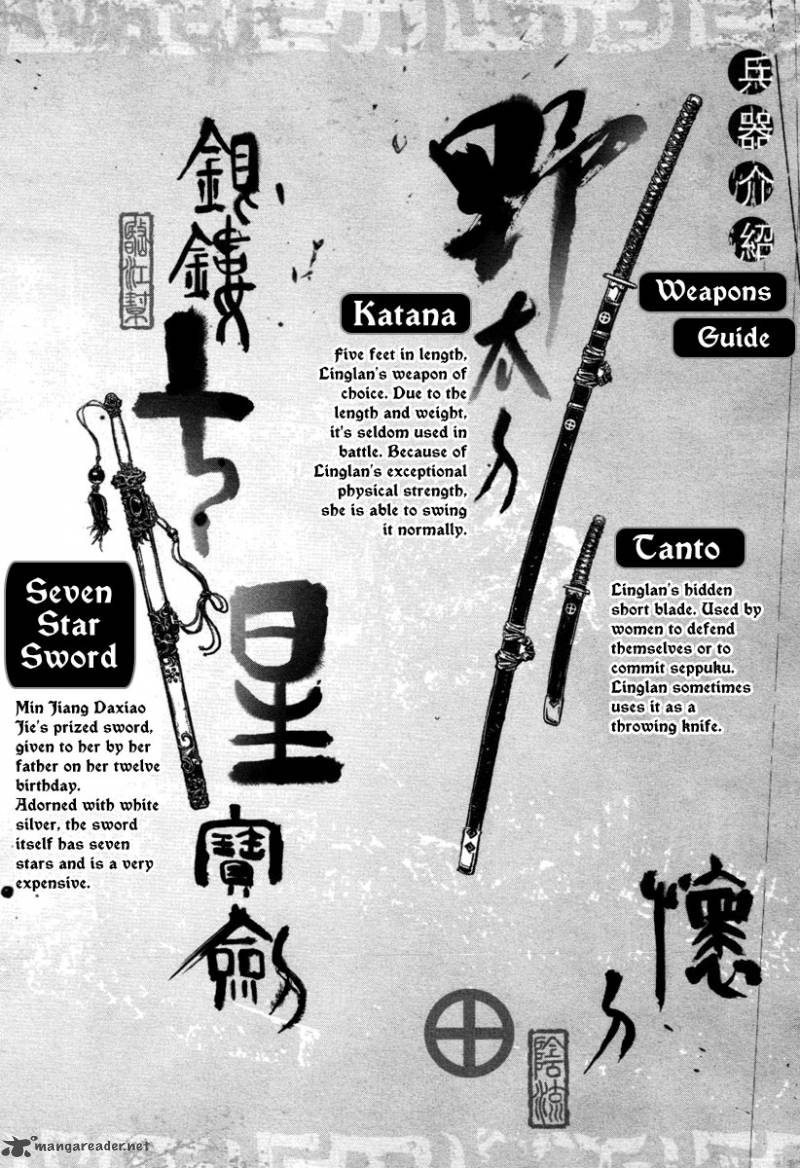 兵器介紹
Weapons
Guide
野太刀
Katana
Five feet in length,
Linglan's weapon of
choice. Due to the
length and weight,
it's seldom used in
battle. Because of
Linglan's exceptional
physical strength,
she is able to swing
it normally.
Tanto
Linglan's hidden
short blade. Used by
women to defend
themselves or to
commit seppuku.
Linglan sometimes
uses it as a
throwing knife.
懷刀
陰流
銀鏤七星寶劍
臨江幫
Seven
Star
Sword
Min Jiang Daxiao
Jie's prized sword,
given to her by her
father on her twelve
birthday.
Adorned with white
silver, the sword
itself has seven
stars and is a very
expensive.
mangareader.net